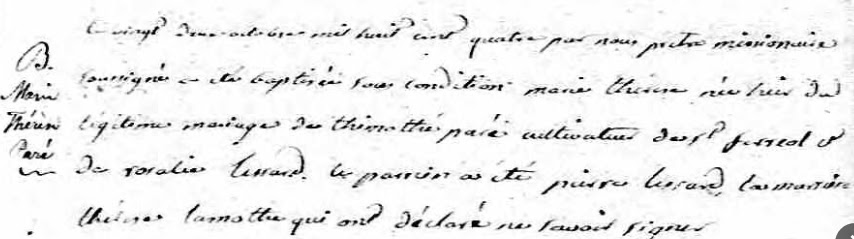 Le vingt deux octobre mil huit cent quatre par nous pretre missionaire
B.
soussigné a été baptisée sous condition marie therese née hier du
Marie
Thérèse
légitime mariage de thimothé paré cultivateur de st ferreol &
Paré
de rosalie lessard. le parrein a été pierre lessard, la marraine
thérese lamothe qui ont déclaré ne savoir signer